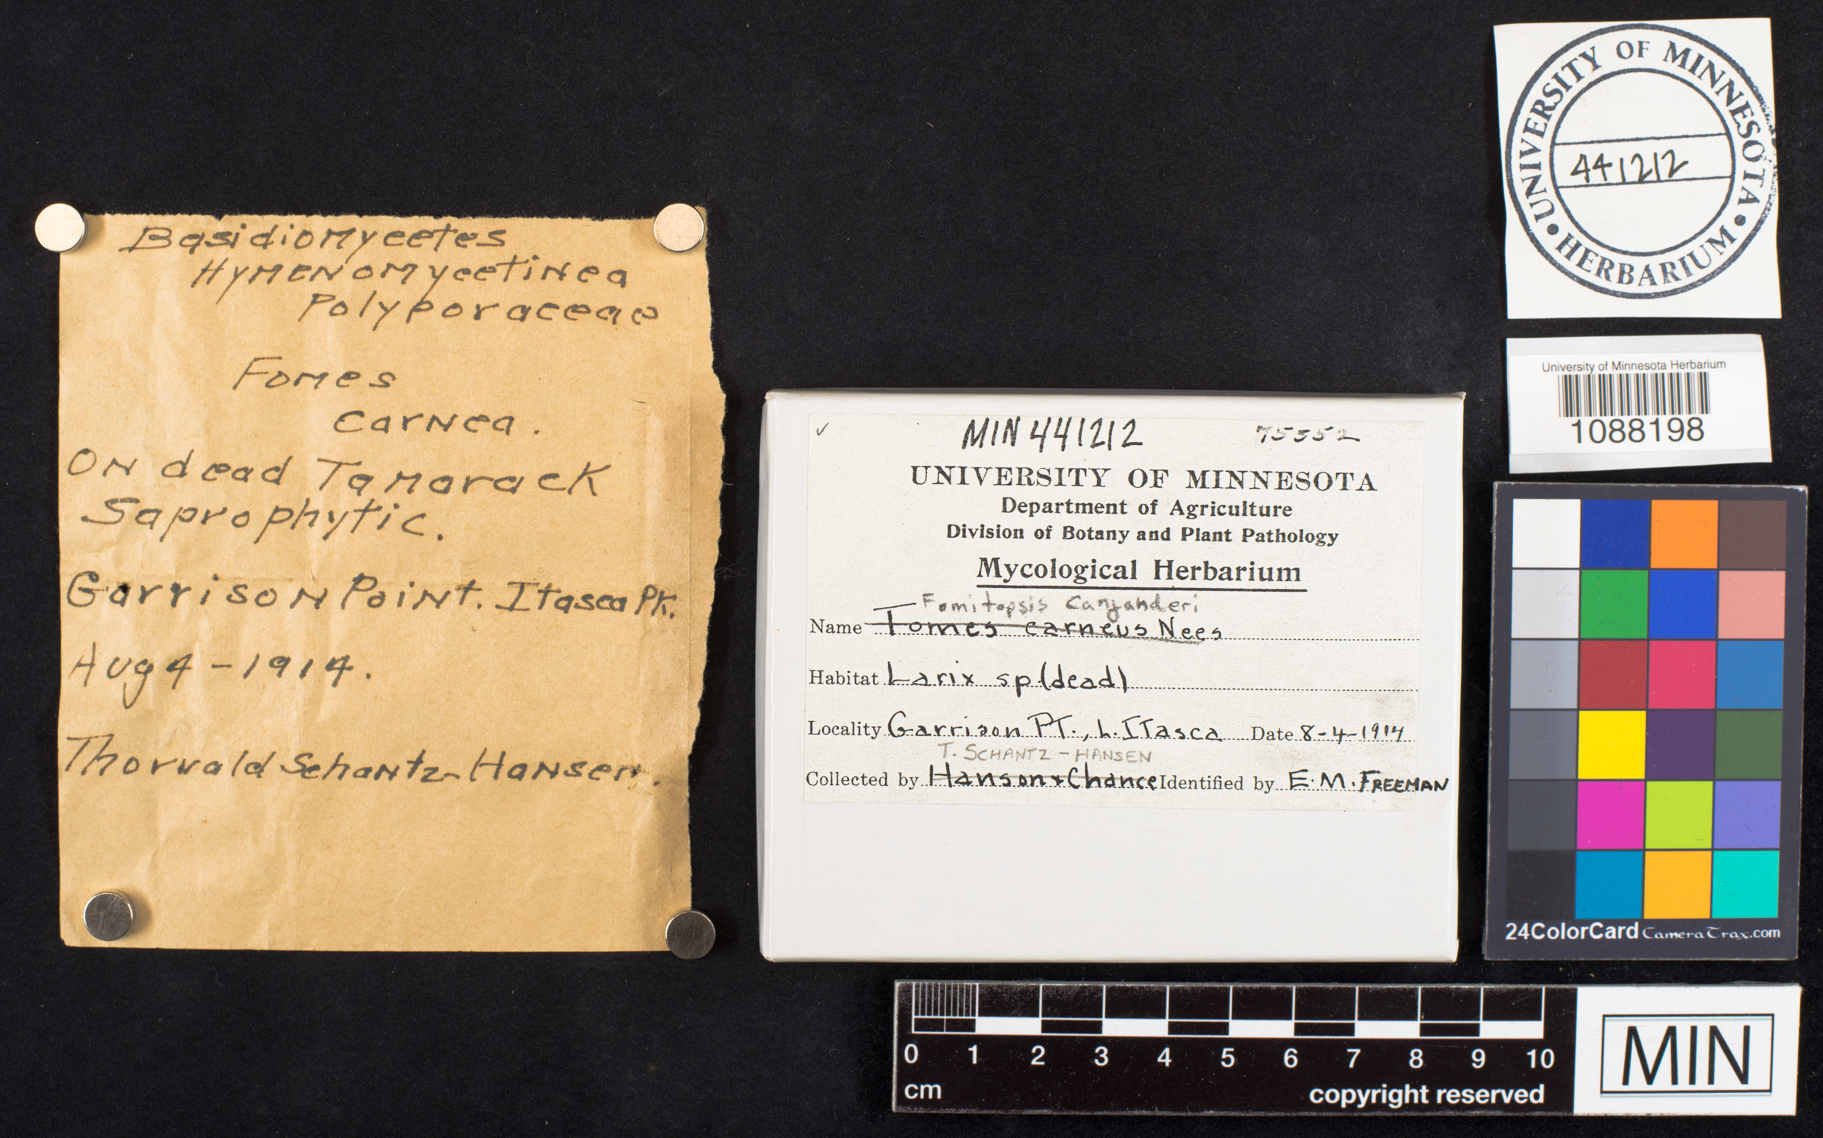 Basidiomycetes
Hymenomycetinea
Polyporaceae
Fomes
carnea.
On dead Tamarack
Saprophytic.
Garrison Point. Itasca Pk.
Aug 4 - 1914.
Thorvald Schantz-Hansen.
MIN 441212 75552
UNIVERSITY OF MINNESOTA
Department of Agriculture
Division of Botany and Plant Pathology
Mycological Herbarium
Fomitopsis Cajanderi
Name Fomes carneus Nees
Habitat Larix sp (dead)
Locality Garrison PT., L. Itasca Date 8-4-1914
T. SCHANTZ-HANSEN
Collected by Hanson + Chance Identified by E. M. FREEMAN
UNIVERSITY OF MINNESOTA
441212
HERBARIUM
University of Minnesota Herbarium
1088198
24ColorCard CameraTrax.com
0 1 2 3 4 5 6 7 8 9 10
cm
copyright reserved
MIN